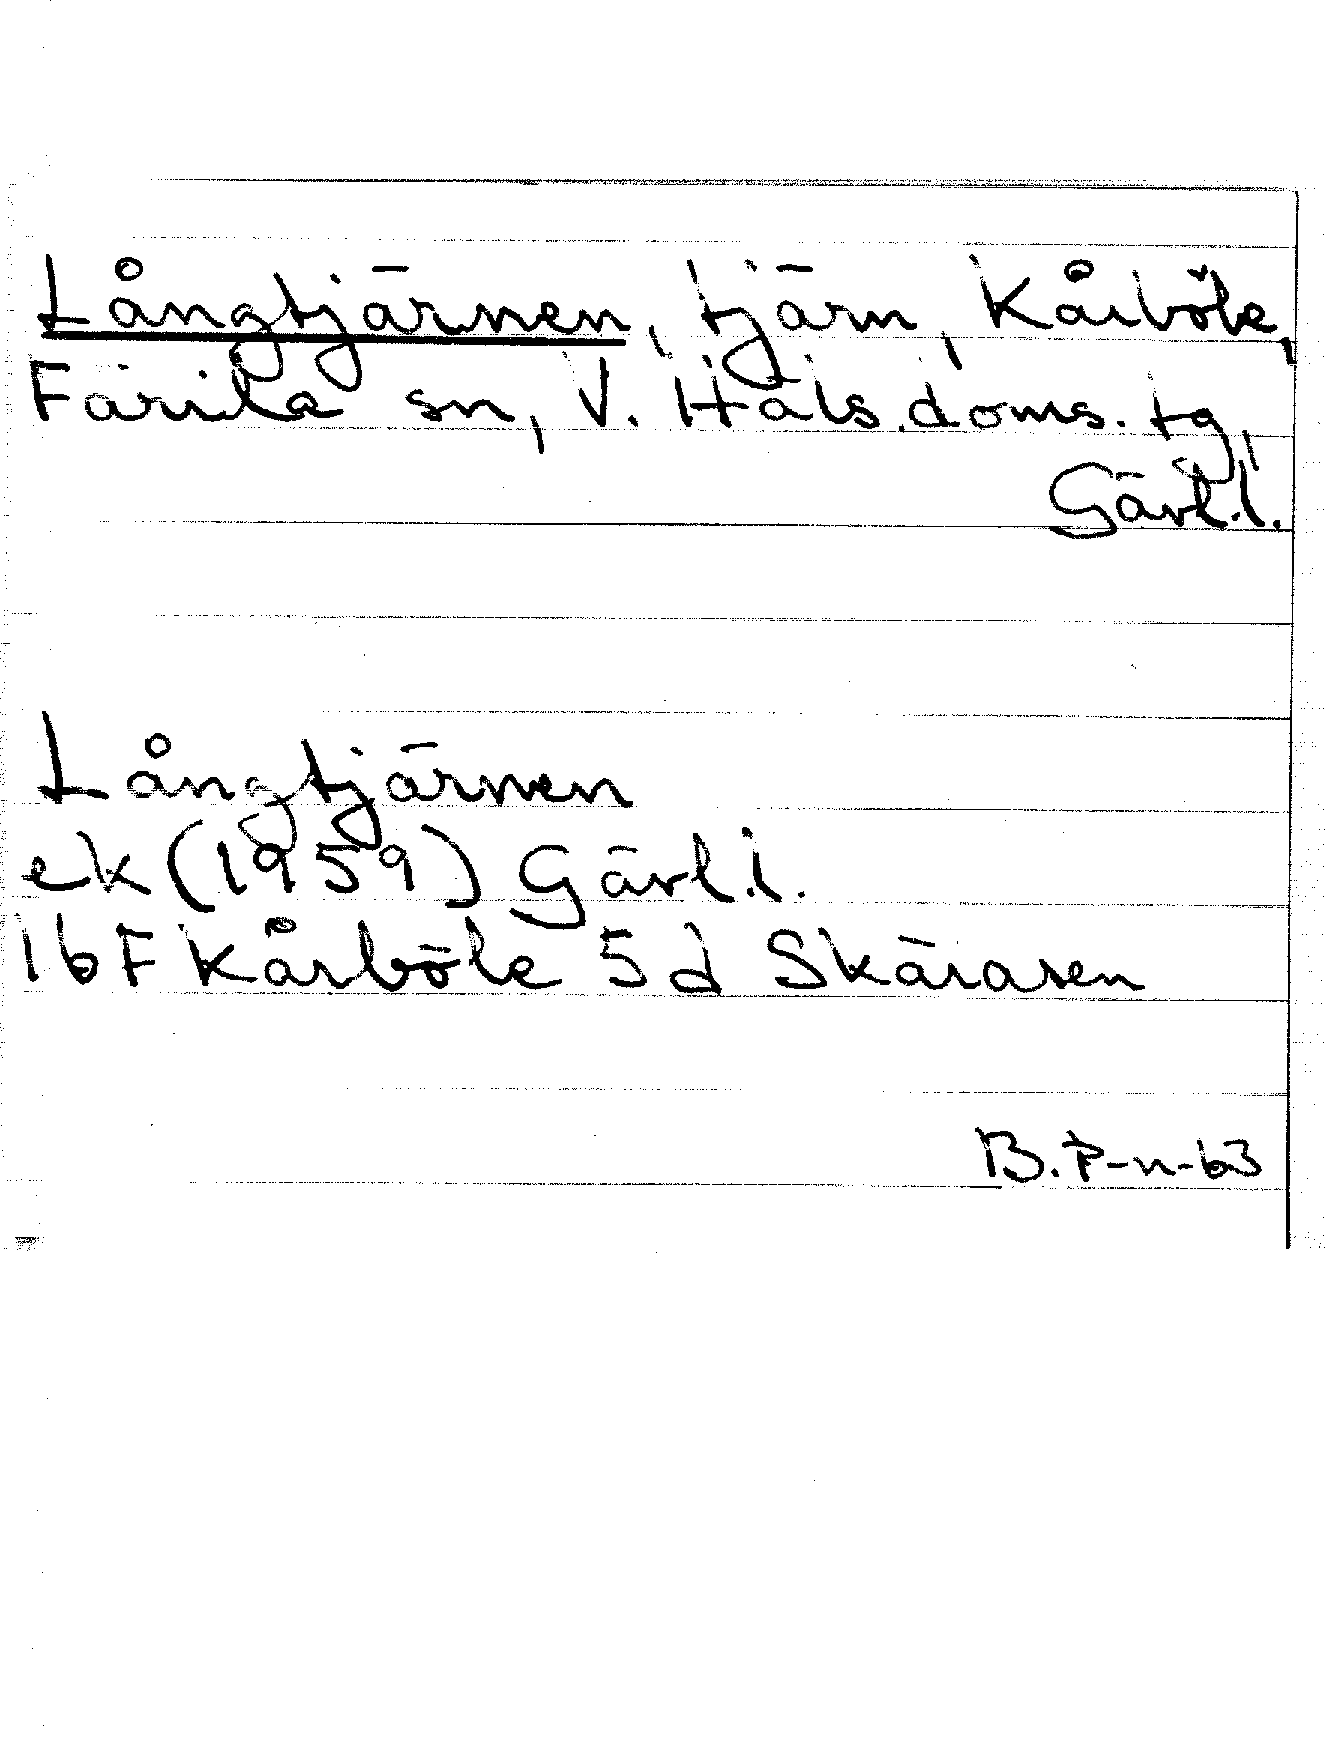 Långtjärnen, tjärn, Kårböle,
Färila sn, V. Häls. doms. tg,
Gävl.l.
Långtjärnen
ek (1959) Gävl.l.
16F Kårböle 5d Skäråsen
B. P-n-63